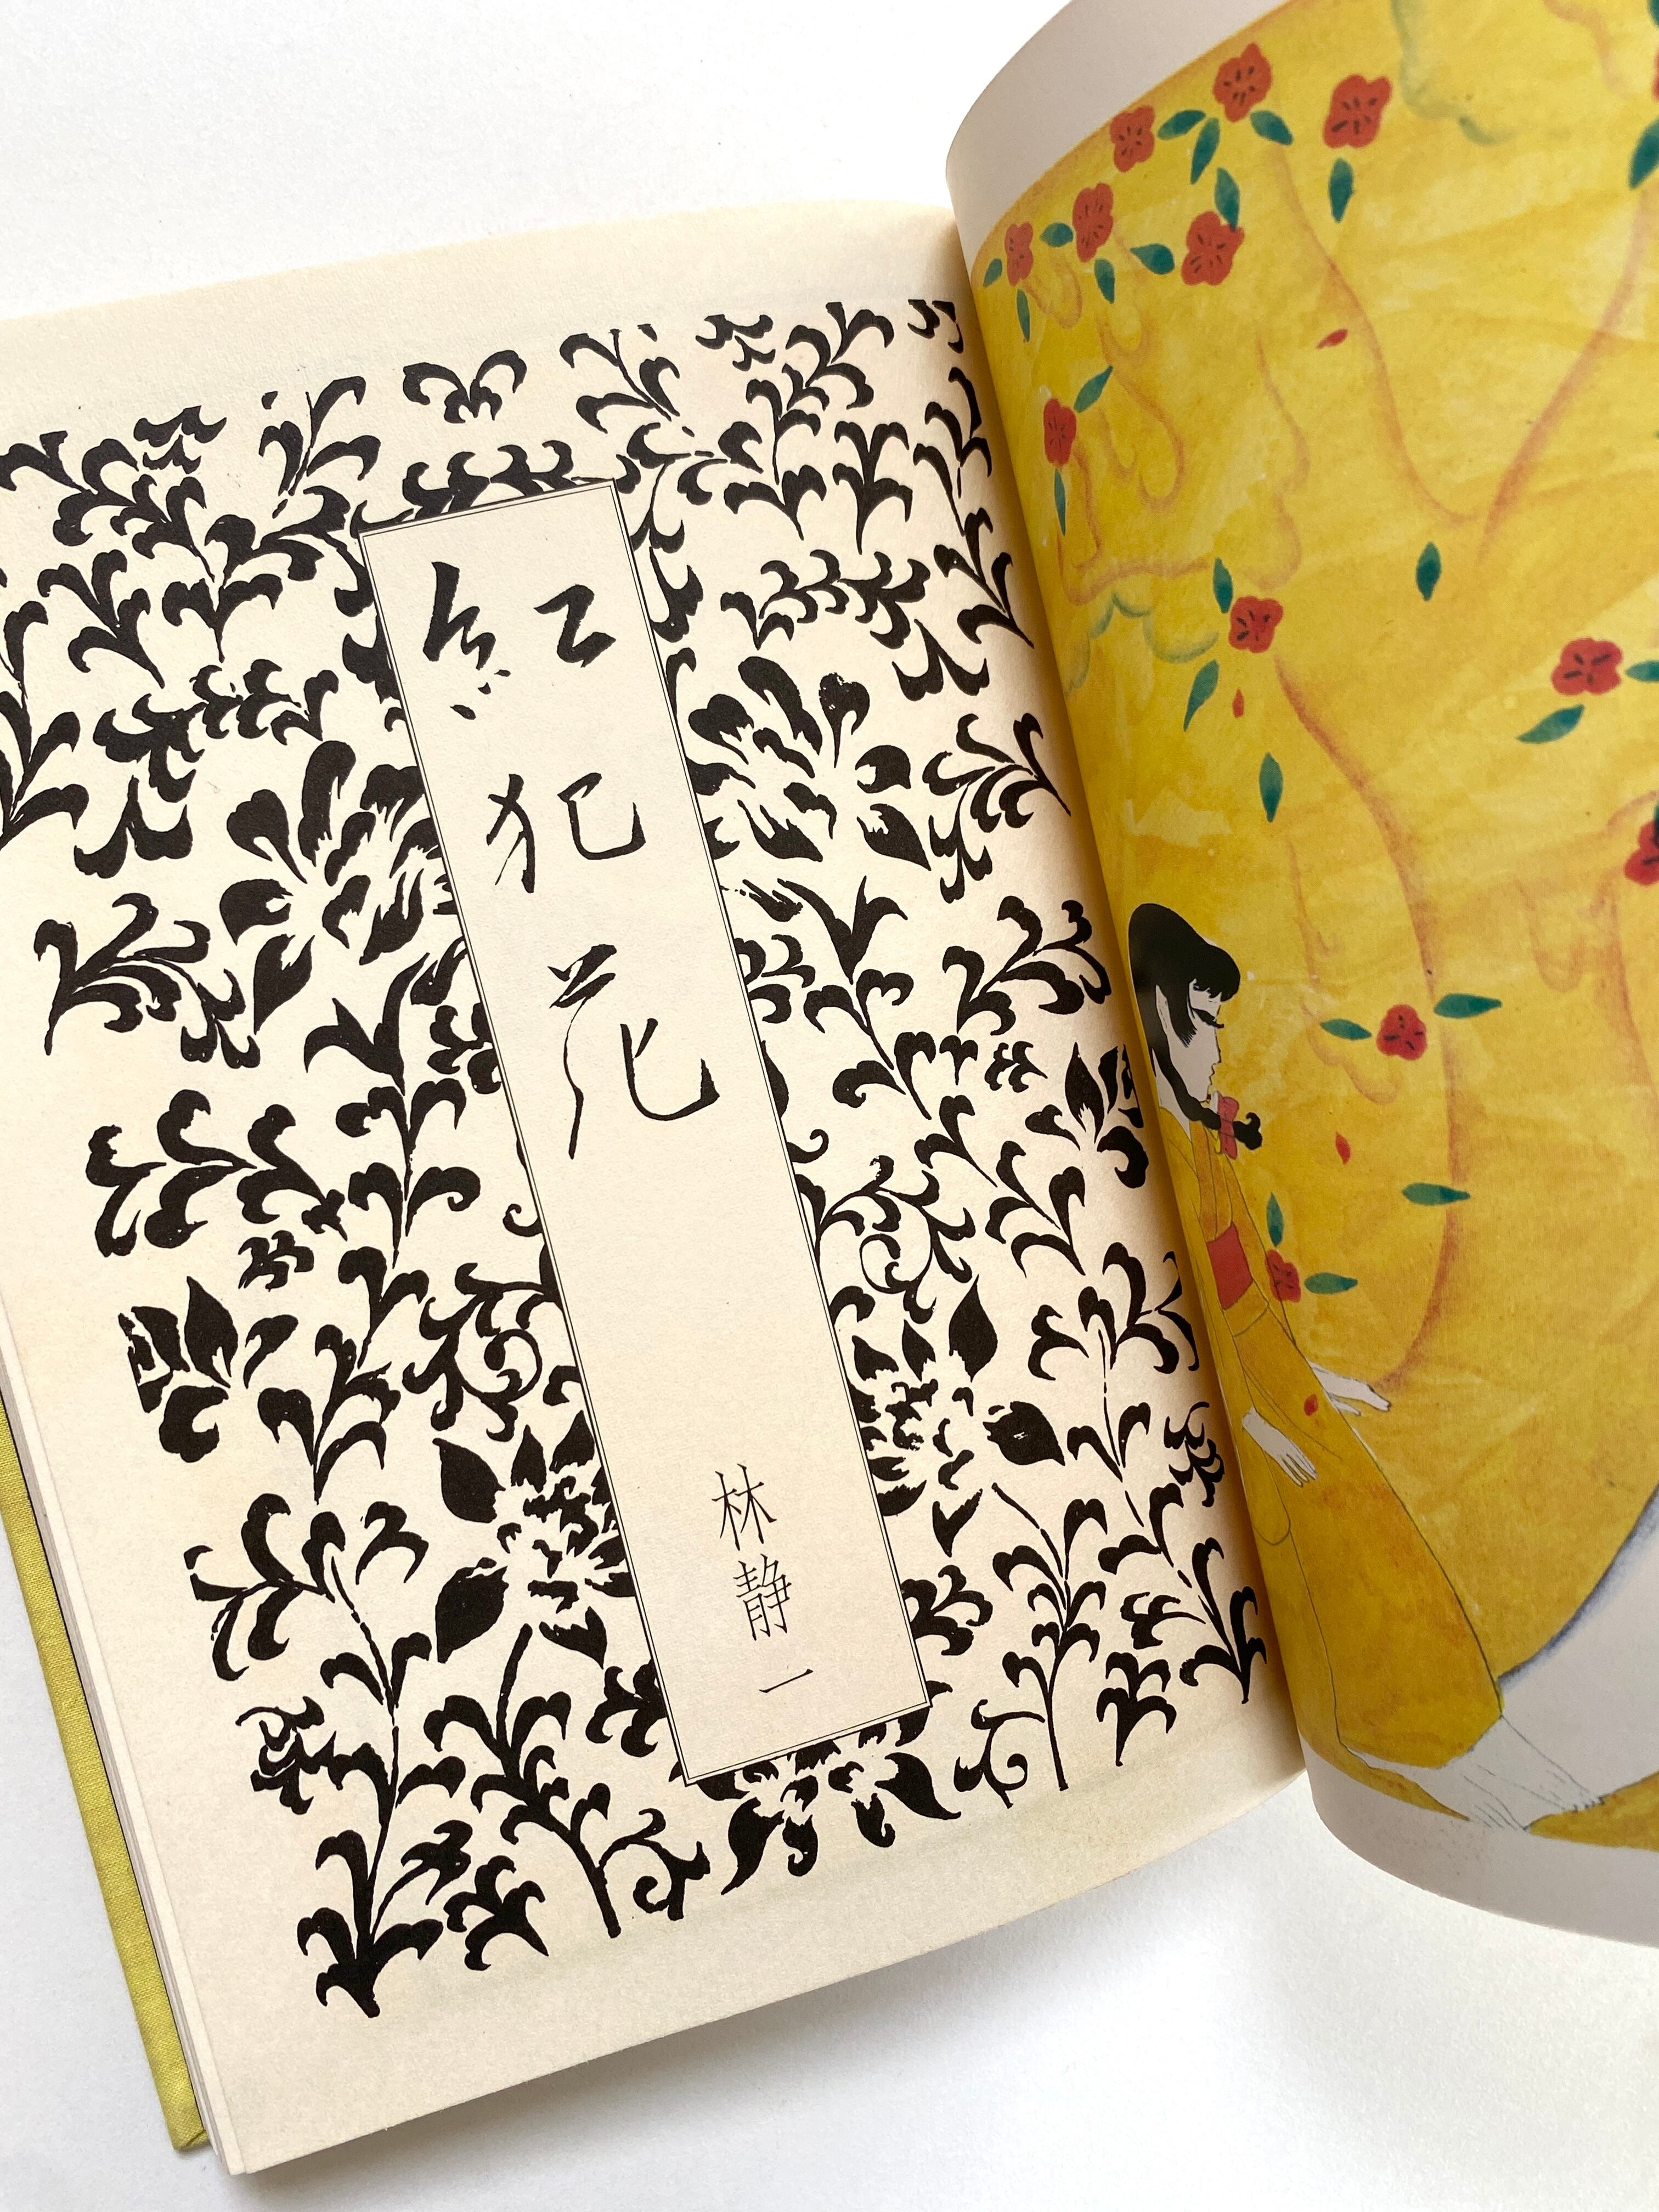 紅犯花
林静一